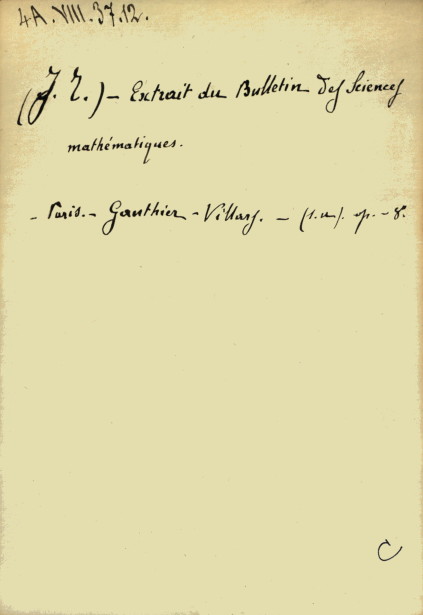 4A.VIII.37.12.
(J. T.) - Extrait du Bulletin des Sciences
mathématiques.
- Paris. - Gauthier - Villars. - (s.a). op. - 8.
C